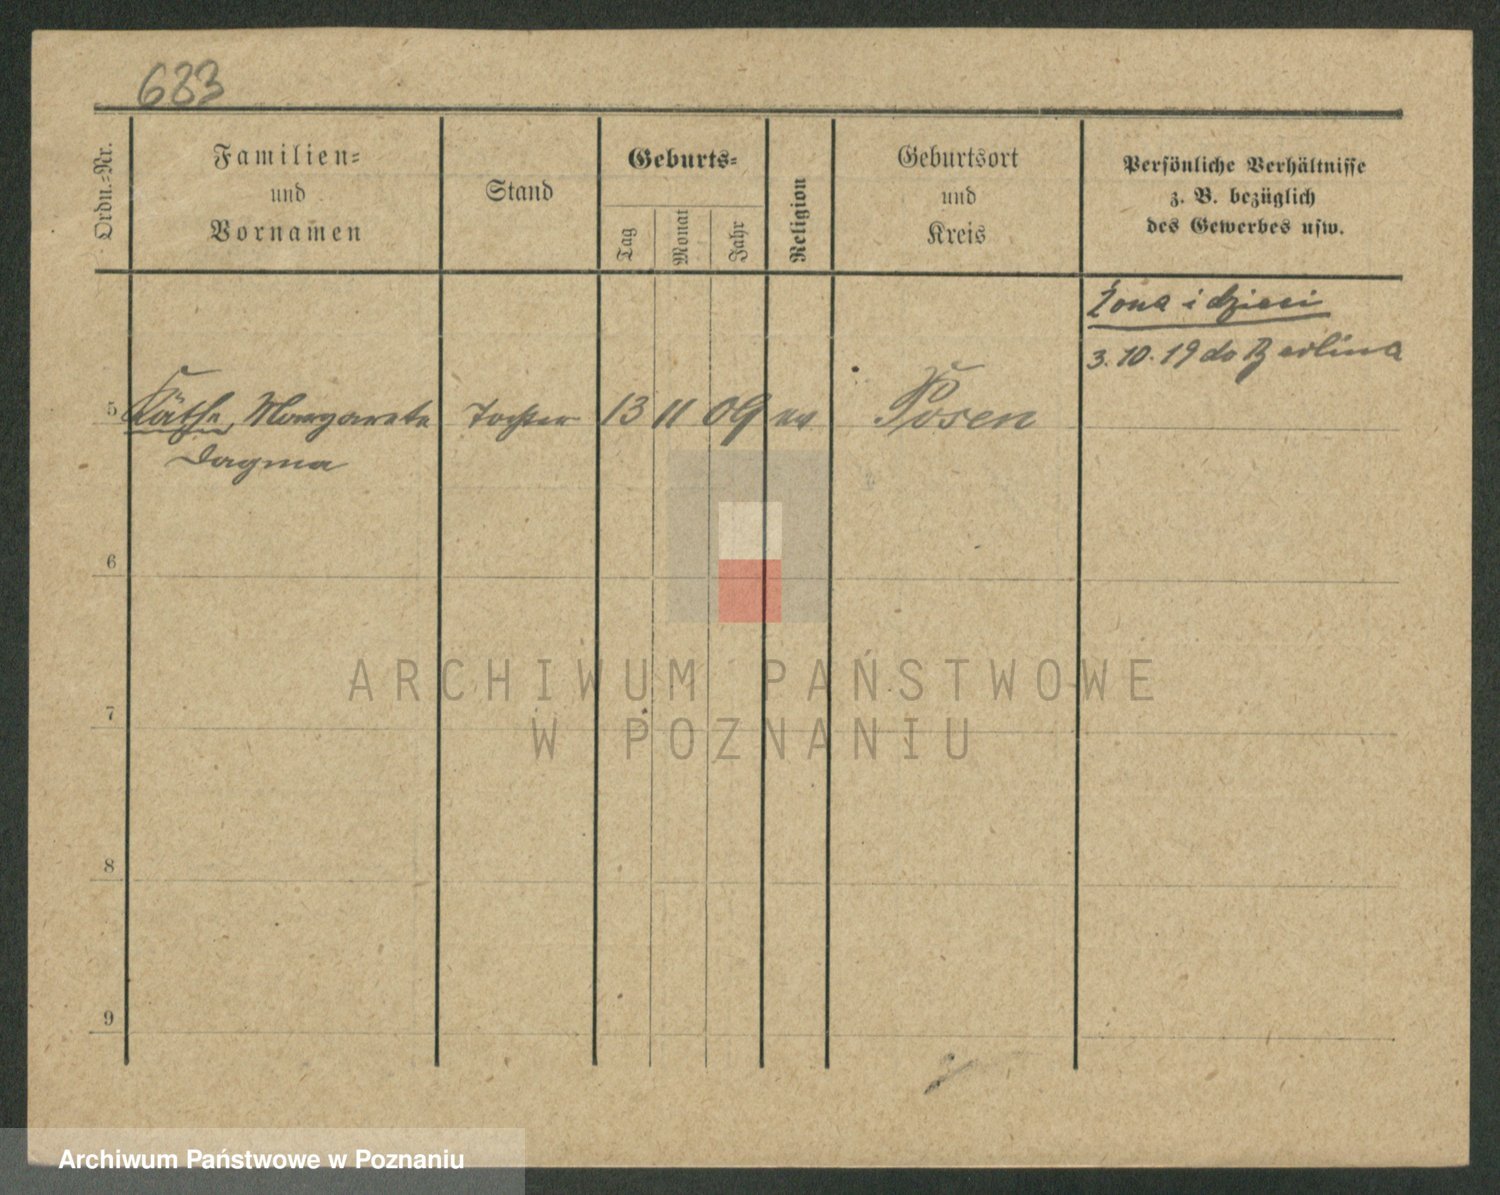 683
Ordn.-Nr.
Familien-
und
Vornamen
Stand
Geburts-
Tag
Monat
Jahr
Religion
Geburtsort
und
Kreis
Persönliche Verhältnisse
z. B. bezüglich
des Gewerbes usw.
Żona i dzieci
3.10.19 do Berlina
5 Käthe, Margarete Tochter 13 11 09 Posen
Dagma
6
7
8
9
ARCHIWUM PAŃSTWOWE
W POZNANIU
Archiwum Państwowe w Poznaniu